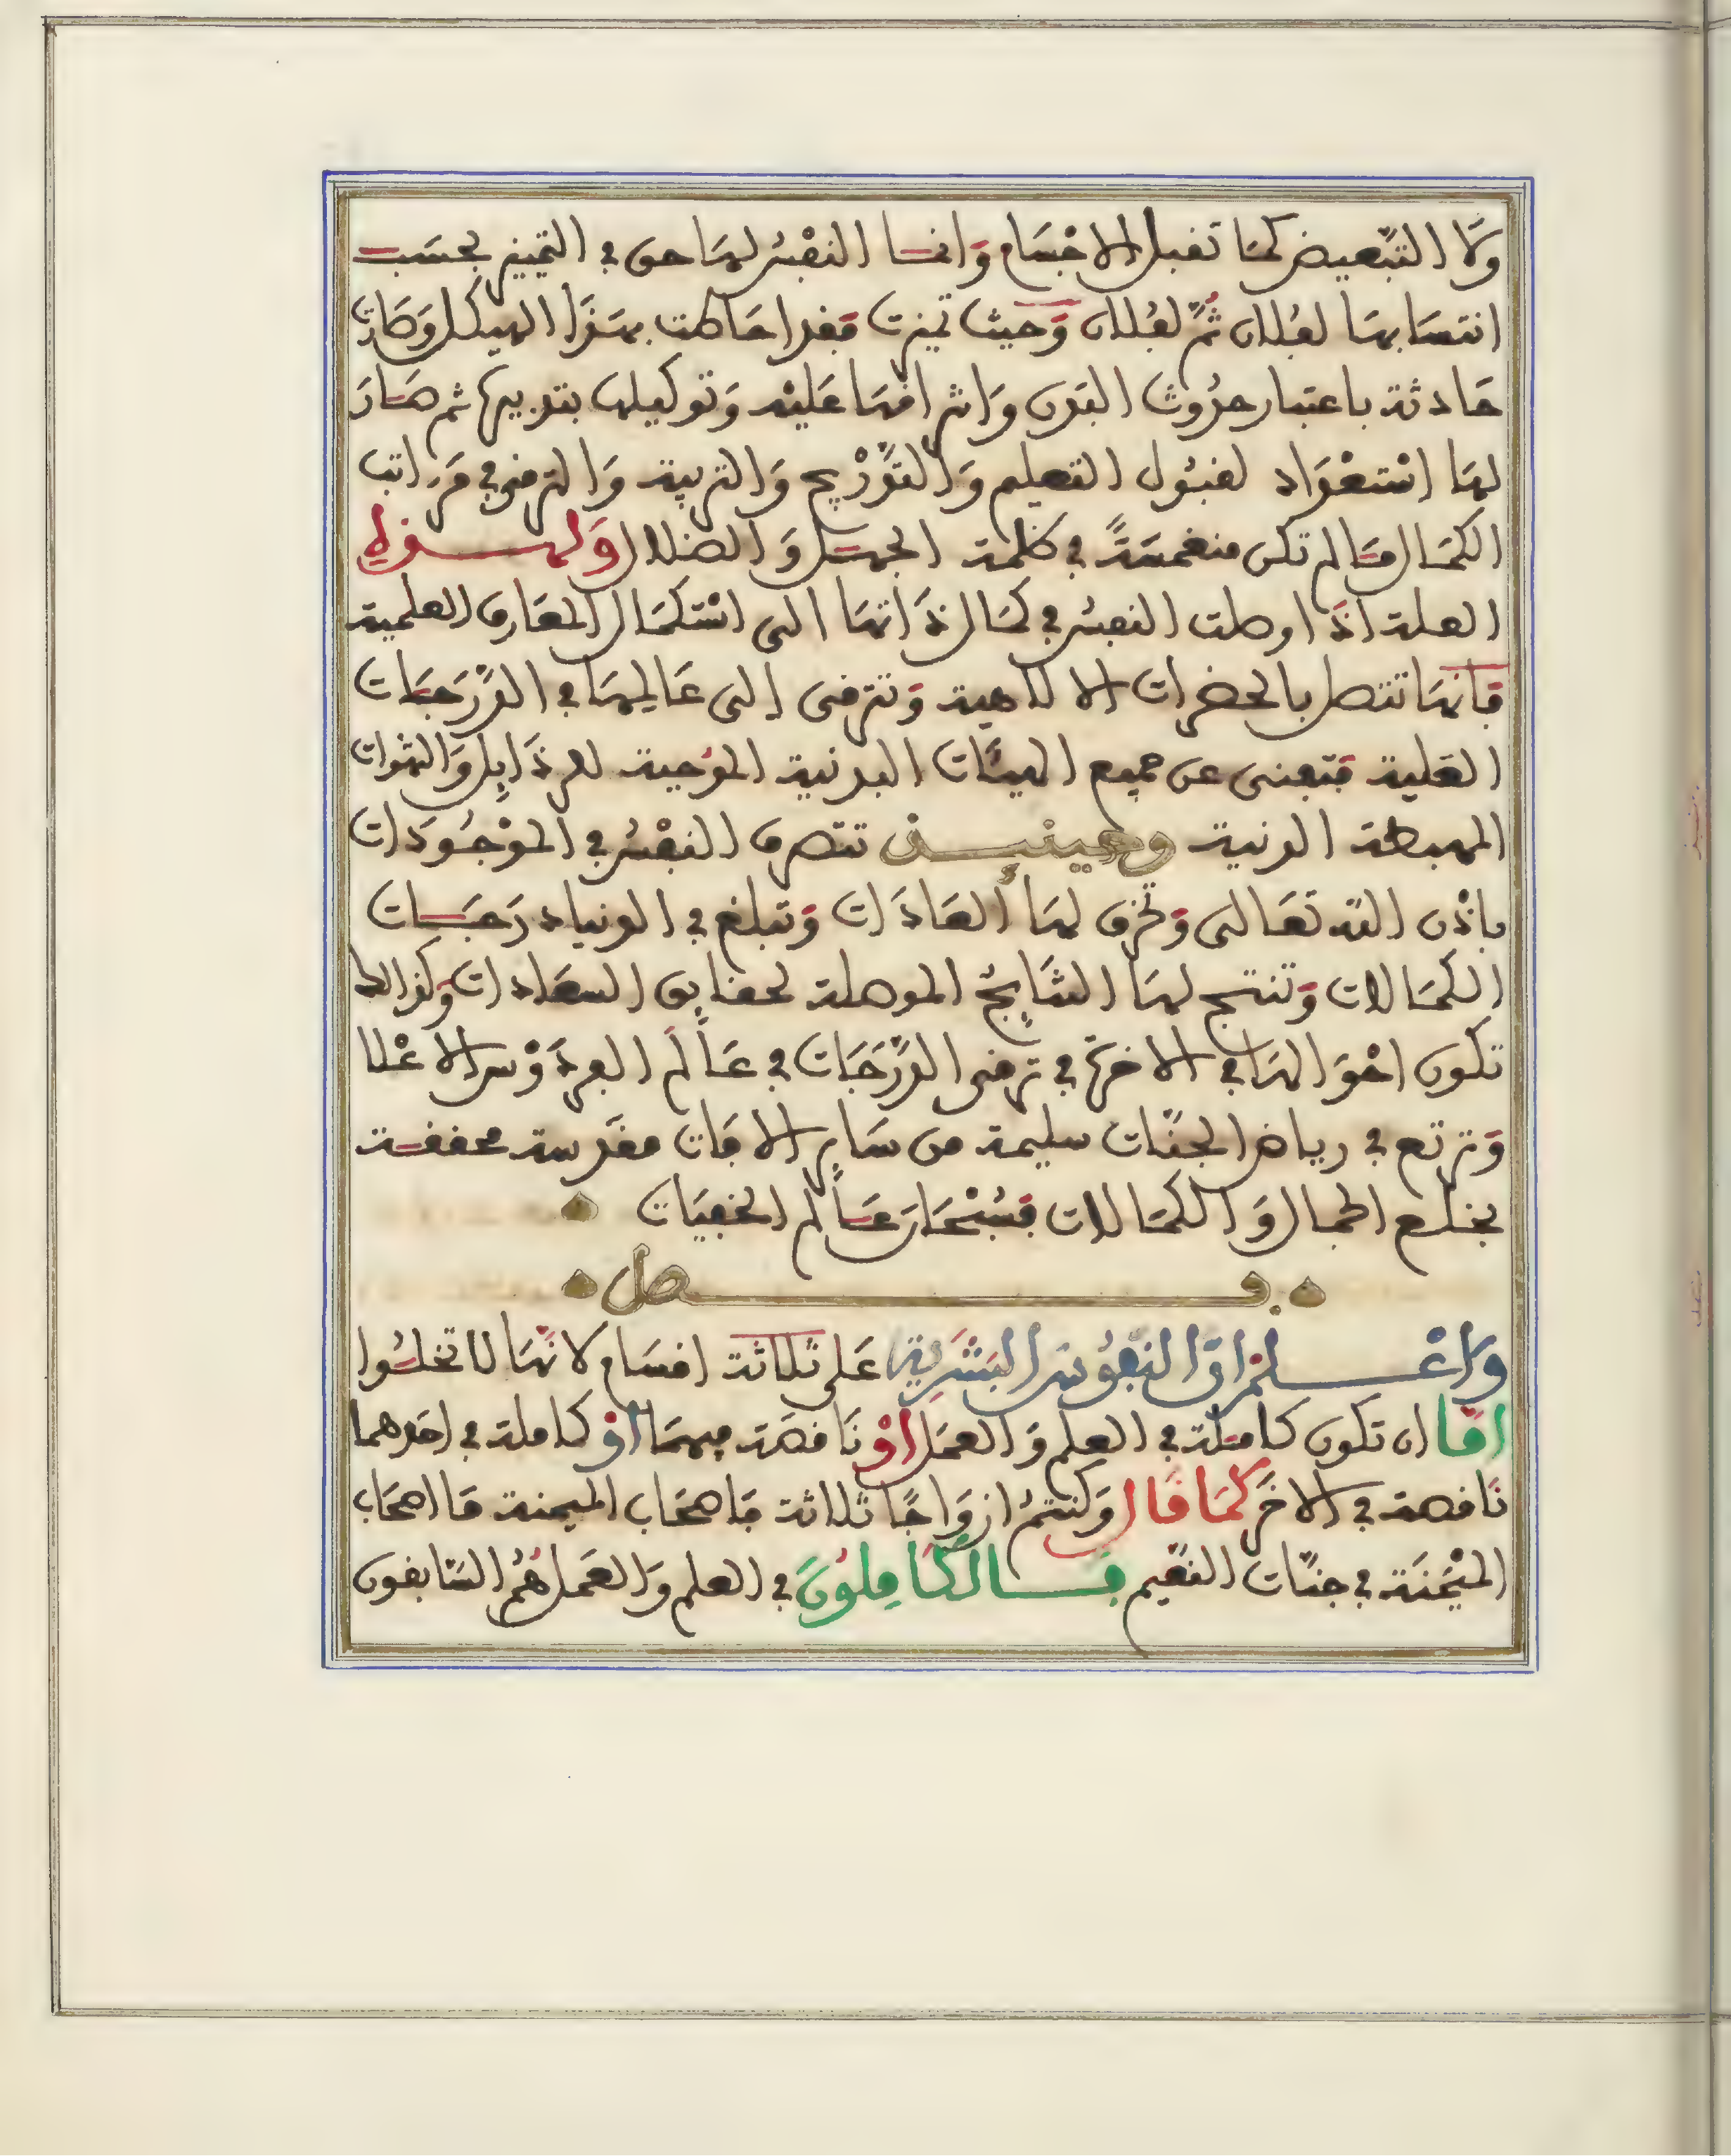 ولا التبعيض كما تقبل الاجسام وانما النفس لها حق في التمييز بحسب
انتسابها لفلان ثم لفلان وحيث تميزت فقد احاطت بهذا الهيكل وصارت
حادثة باعتبار حدوث البدن واشرافها عليه وتوكيلها بتدبيرها ثم صار
لها استعداد لقبول التعليم والتدريج والتربية والترقي في مراتب
الكمال ما لم تكن منغمسة في ظلمة الجهل والضلال ولهذه
العلة اذا وصلت النفس في كمال ذاتها الى استكمال المعارف العلمية
فانها تتصل بالحضرات الالاهية وتترقى الى عالمها في الدرجات
العلية فتفنى عن جميع الهيئات البدنية الموجبة للرذايل والشهوات
المهبطة الدنية وحينئذ تتصرف النفس في الموجودات
باذن الله تعالى وتخرق لها العادات وتبلغ في الدنيا درجات
الكمالات وتنتج لها النتايج الموصلة لحقايق السعادات وكذالك
تكون احوالها في الاخرة في ترقي الدرجات في عالم الفردوس الاعلا
وترتع في رياض الجنات سليمة من ساير الافات مقدسة محففة
بخلع الجمال والكمالات فسبحان عالم الخفيات
فصل
واعلم ان النفوس البشرية على ثلاثة اقسام لانها لا تخلوا
اما ان تكون كاملة في العلم والعمل او ناقصة فيهما او كاملة في احدهما
ناقصة في الاخر كما قال وكنتم ازواجا ثلاثة فاصحاب الميمنة ما اصحاب
الميمنة في جنات النعيم فالكاملون في العلم والعمل هم السابقون